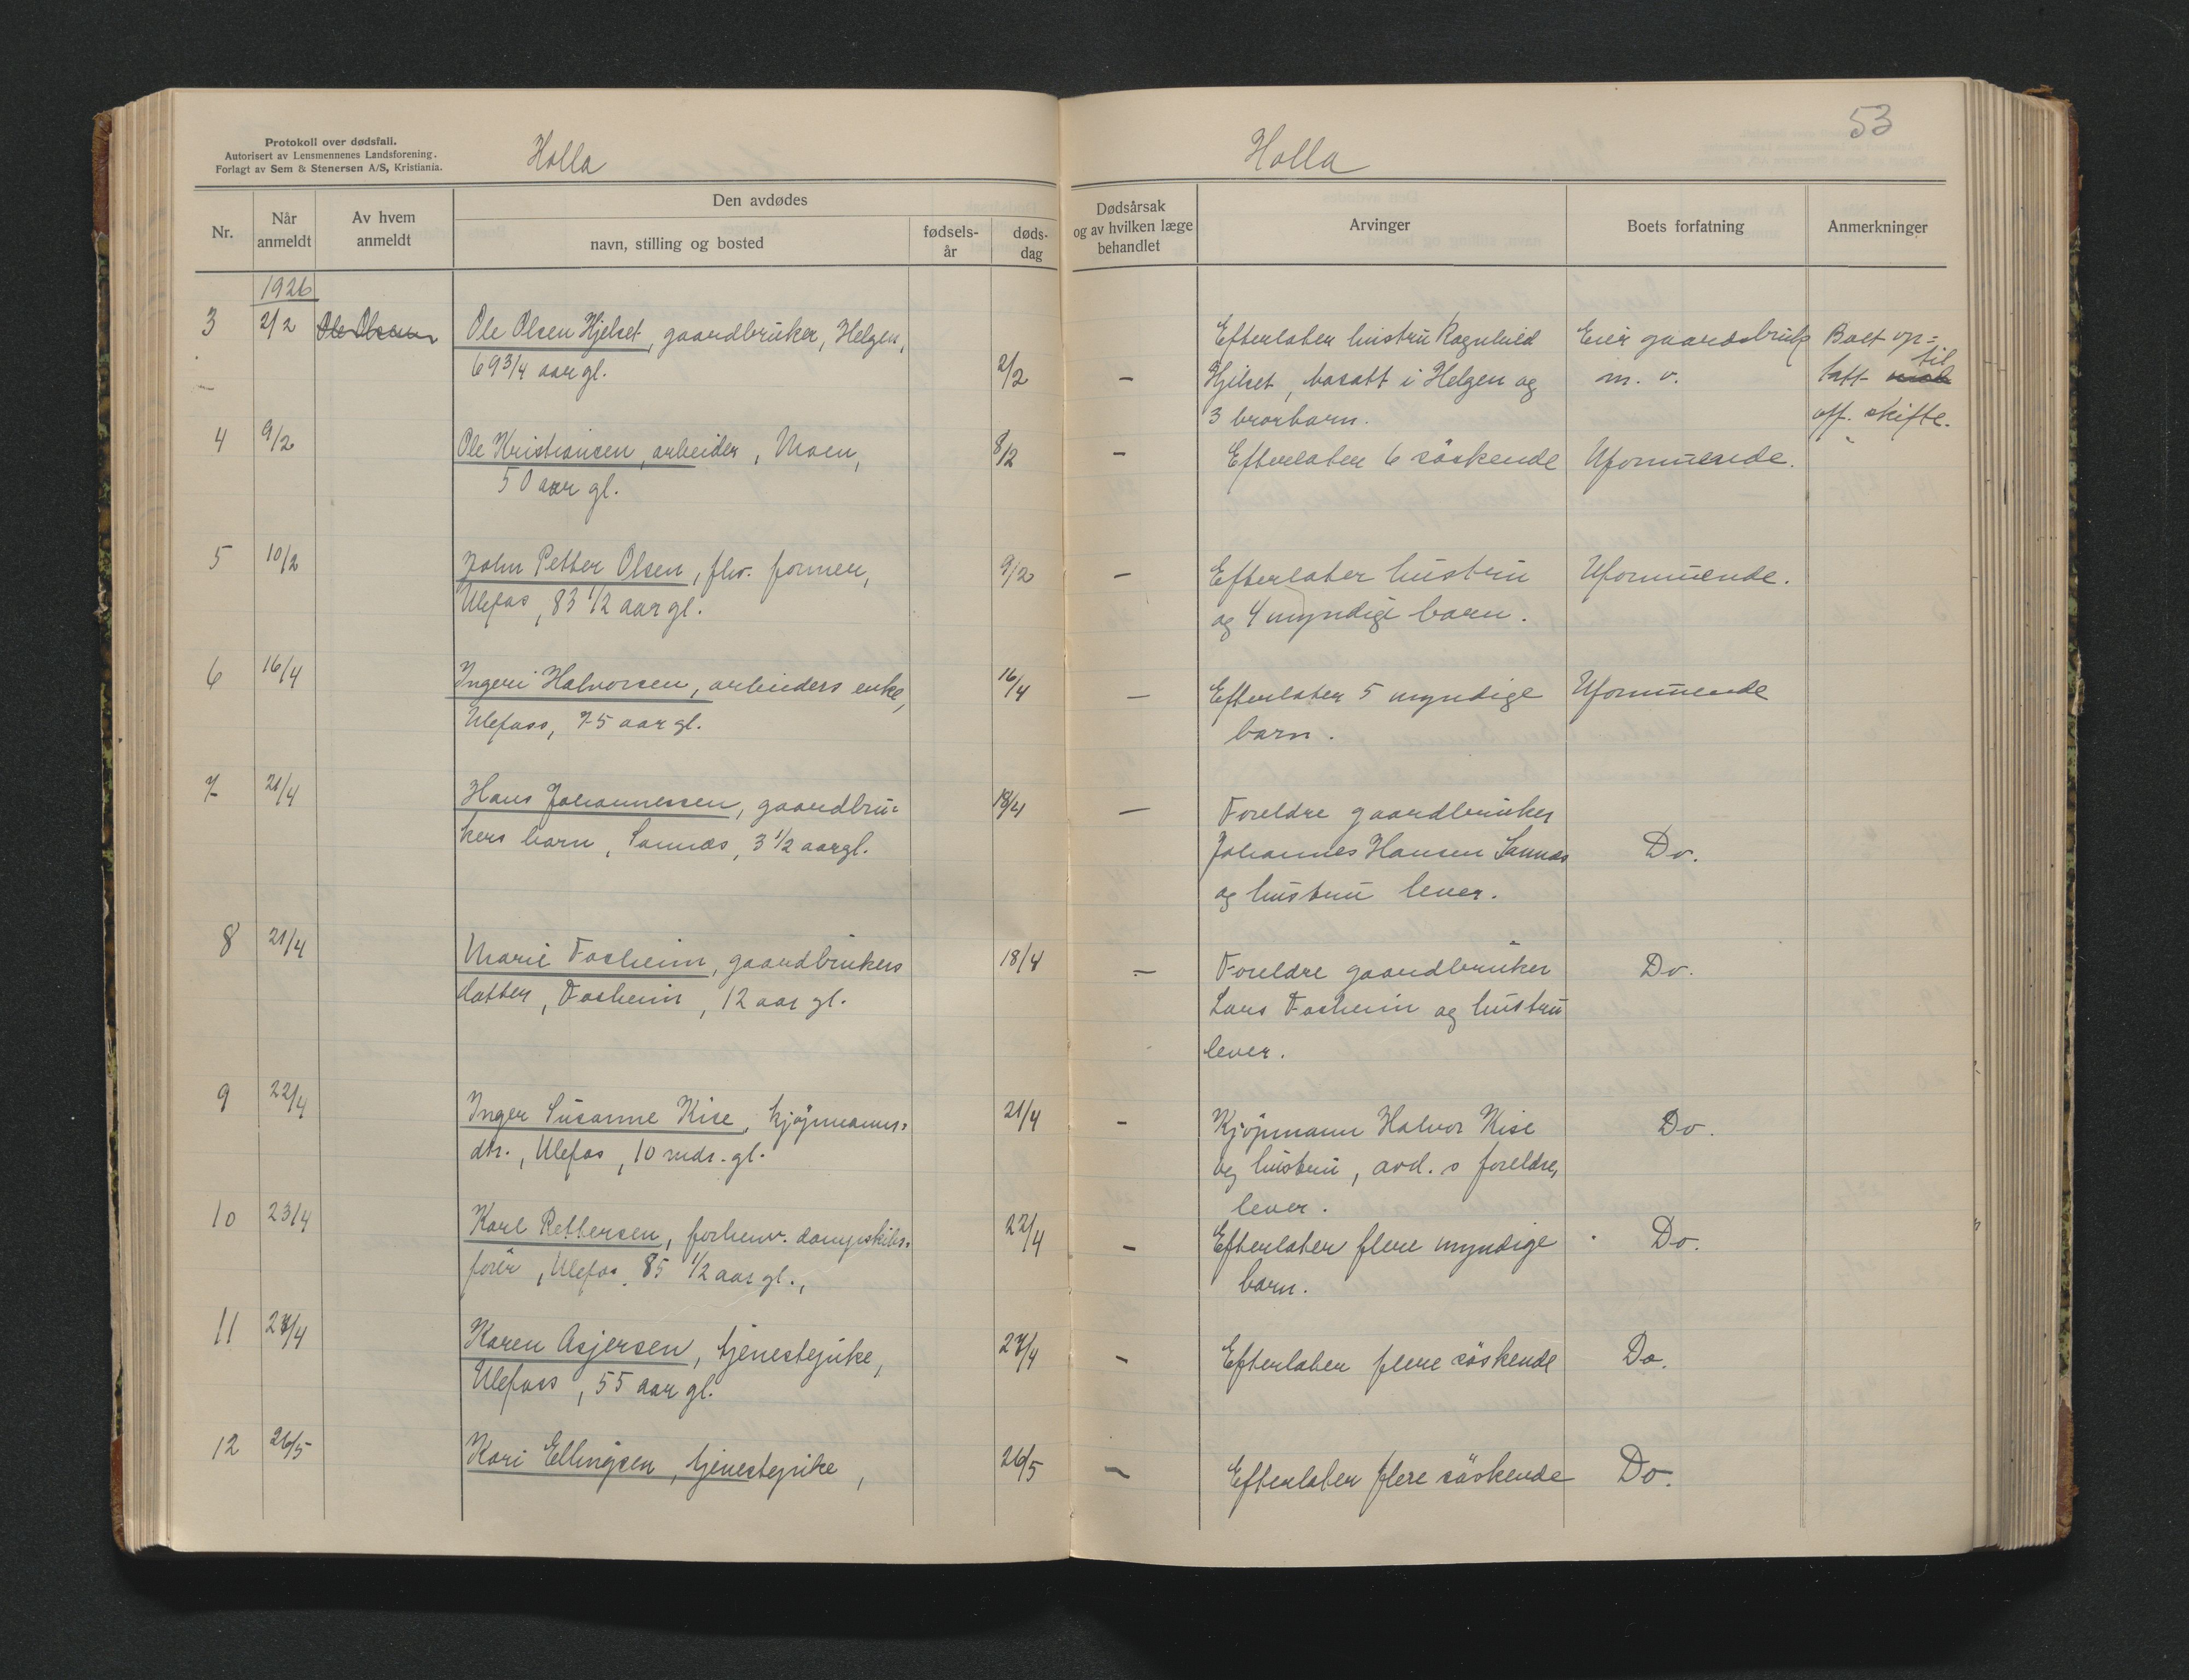 Protokoll over dødsfall.
Autorisert av Lensmennenes Landsforening.
Forlagt av Sem & Stenersen A/S, Kristiania.
Holla
Nr.
Når
anmeldt
Av hvem
anmeldt
Den avdødes
navn, stilling og bosted
fødsels-
år
døds-
dag
1926
3 2/2 Ole Olsen Ole Olsen Hjelset, gaardbruker, Helgen,
69 3/4 aar gl. 2/2
4 9/2 Ole Kristiansen, arbeider, Moen, 8/2
50 aar gl.
5 10/2 John Petter Olsen, fhv. former, 9/2
Ulefos, 83 1/2 aar gl.
6 16/4 Ingeri Halvorsen, arbeiders enke, 16/4
Ulefoss, 75 aar gl.
7 21/4 Hans Johannessen, gaardbru= 18/4
kers barn, Sannes, 3 1/2 aar gl.
8 21/4 Marie Fosheim, gaardbrukers 18/4
datter, Fosheim, 12 aar gl.
9 22/4 Inger Susanne Kise, kjøpmanns= 21/4
dtr., Ulefos, 10 mdr. gl.
10 23/4 Karl Pettersen, forhenv. dampskibs= 22/4
förer, Ulefos, 85 1/2 aar gl.,
11 27/4 Karen Asjersen, tjenestepike, 27/4
Ulefoss, 55 aar gl.
12 26/5 Kari Ellingsen, tjenestepike, 26/5
53
Holla
Dødsårsak
og av hvilken læge
behandlet
Arvinger
Boets forfatning
Anmerkninger
Efterlater hustru Ragnhild Eier gaardsbruk Boet op=
til
— Hjelset, bosatt i Helgen og m. v. tatt
3 brorbarn. off. skifte.
— Efterlater 6 söskende Uformuende.
— Efterlater hustru Uformuende.
og 4 myndige barn.
— Efterlater 5 myndige Uformuende
barn.
— Foreldre gaardbruker
Johannes Hansen Sannes Do.
og hustru lever.
— Foreldre gaardbruker Do.
Lars Fosheim og hustru
lever.
— Kjøpmann Halvor Kise Do.
og hustru, avd.s foreldre,
lever.
— Efterlater flere myndige Do.
barn.
— Efterlater flere söskende Do.
— Efterlater flere söskende Do.